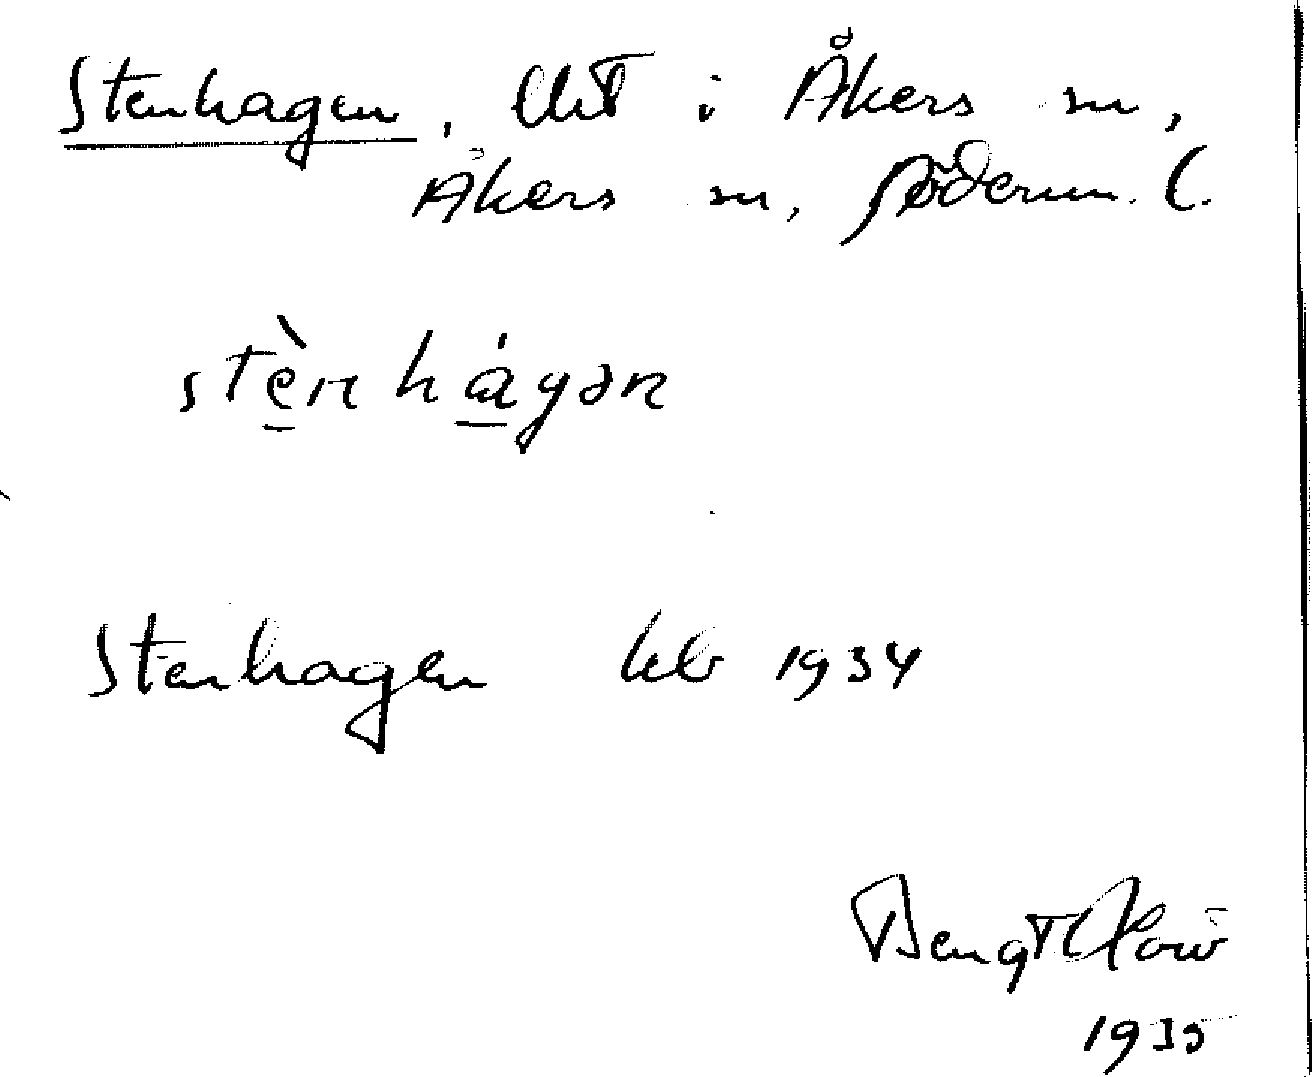 Stenhagen, Utt i Åkers sn,
Åkers sn, Söderm. l.
stènhágən
Stenhagen klb 1934
Bengt
1935